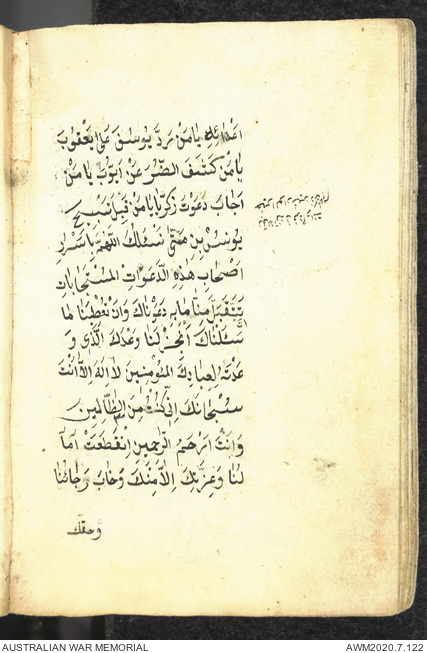 اعدائه يا من رد يوسف على يعقوب
يا من كشف الضر عن ايوب يا من
اجاب دعوت زكريا يا من قبل تسبيح
يونس بن متى نسئلك اللهم باسرار
اصحاب هذه الدعوات المستجابات
تتقبل منا ما به دعوناك وان تعطينا لما
سئلناك انجز لنا وعدك الذى و
عدته لعبادك المؤمنين لا اله الا انت
سبحانك انى كنت من الظالمين
وانت ارحم الرحمين انقطعت اما
لنا وعزتك الا منك وخاب رجائنا
وحقك
AUSTRALIAN WAR MEMORIAL
AWM2020.7.122